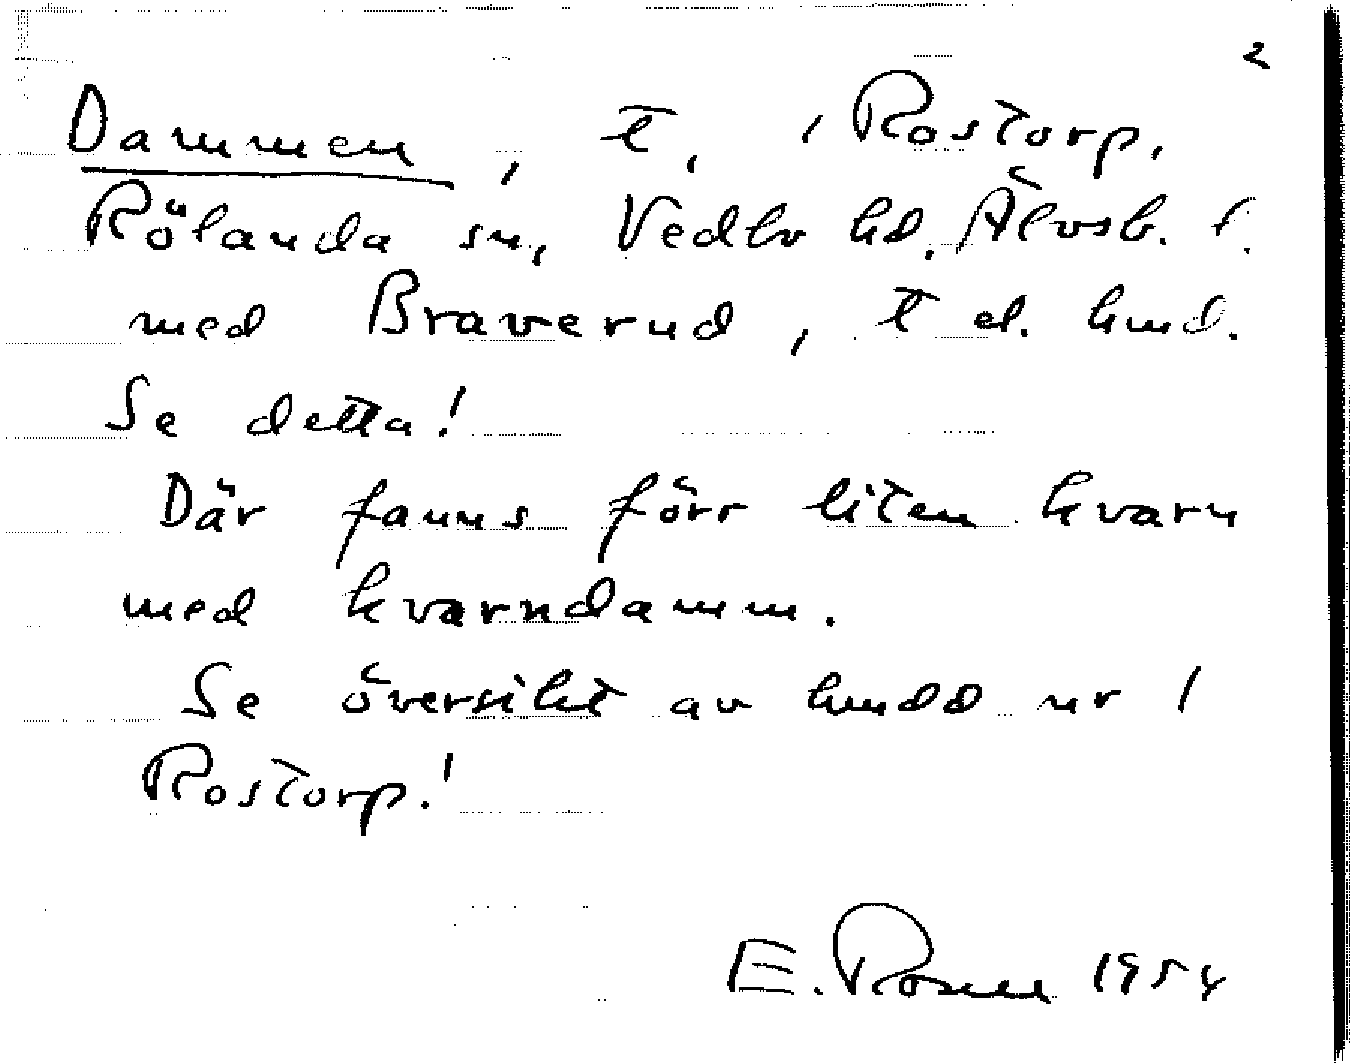 2
Dammen, t, i Rostorp,
Rölanda sn, Vedbo hd. Älvsb. l.
med Braverud, t d. hmd.
Se detta!
Där fanns förr liten kvarn
med kvarndamm.
Se översikt av hmdd ur i
Rostorp!
E. Rosell 1954